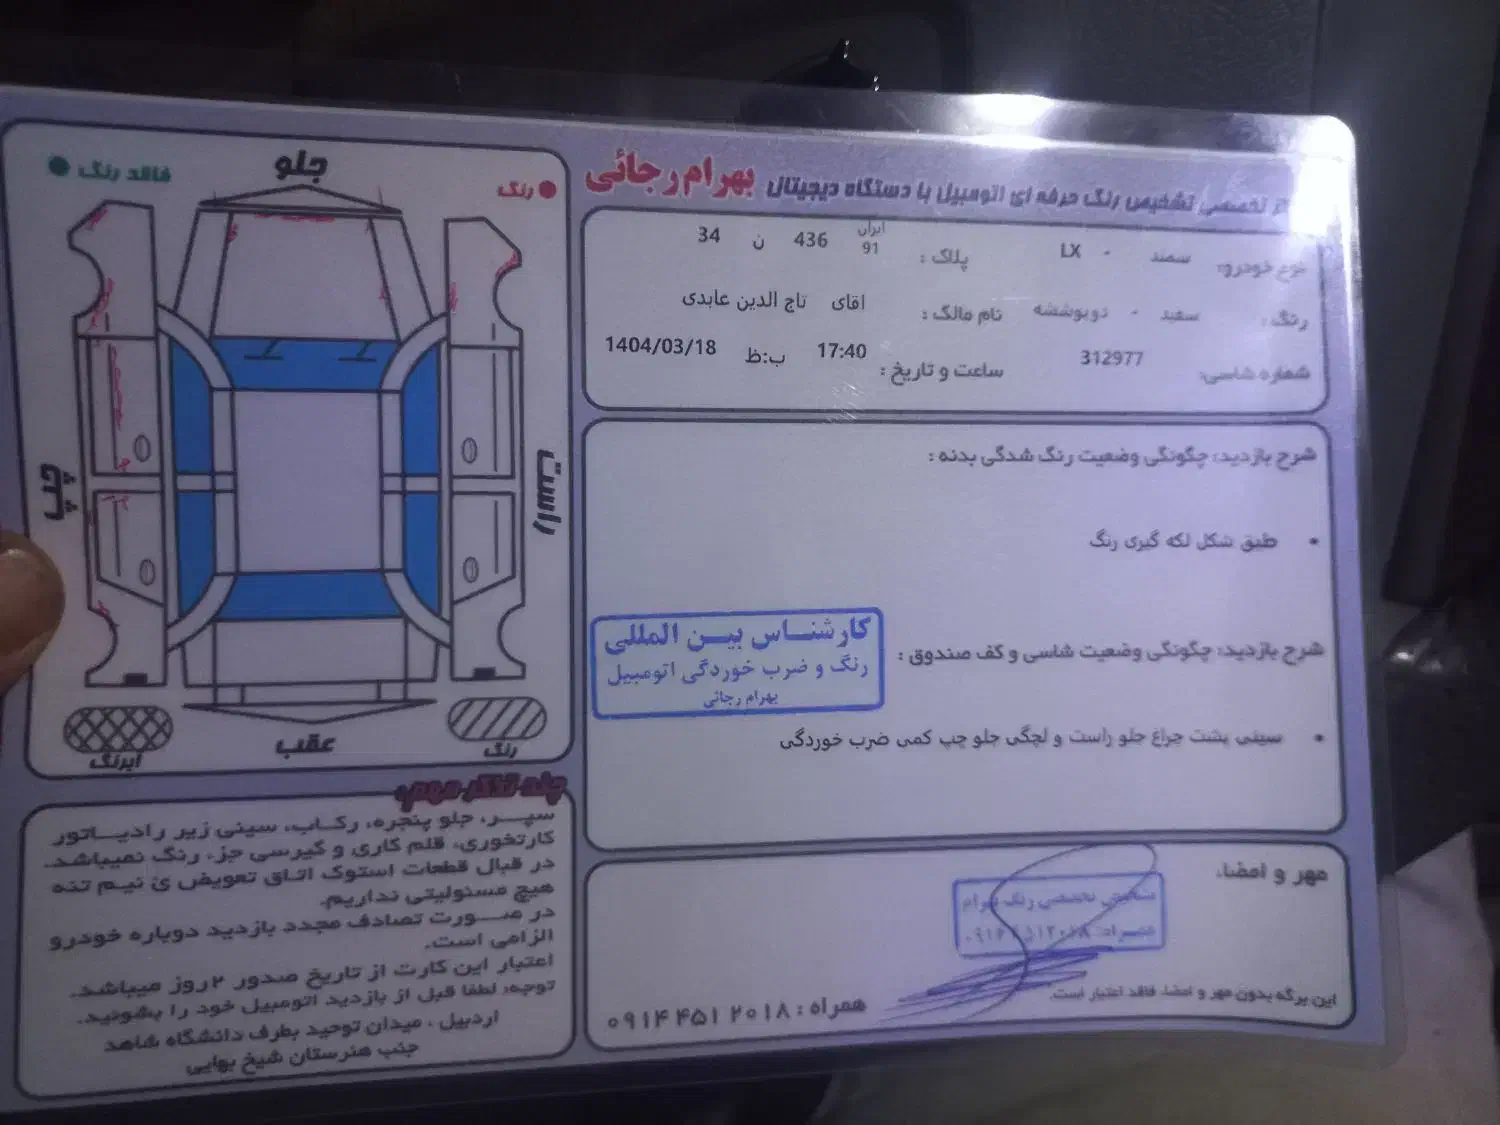 تخصصی تشخیص رنگ حرفه ای اتومبیل با دستگاه دیجیتال بهرام رجائی
نوع خودرو: سمند - LX پلاک : ایران 91 436 ن 34
رنگ: سفید - دوپوششه نام مالک : اقای تاج الدین عابدی
شماره شاسی: 312977 ساعت و تاریخ : 17:40 ب:ظ 1404/03/18
شرح بازدید: چگونگی وضعیت رنگ شدگی بدنه :
• طبق شکل لکه گیری رنگ
شرح بازدید: چگونگی وضعیت شاسی و کف صندوق :
• سینی پشت چراغ جلو راست و لچگی جلو چپ کمی ضرب خوردگی
کارشناس بین المللی
رنگ و ضرب خوردگی اتومبیل
بهرام رجائی
مهر و امضاء
تخصصی رنگ بهرام
این برگه بدون مهر و امضاء فاقد اعتبار است.
همراه : ۰۹۱۴ ۴۵۱ ۲۰۱۸
جلو
فاقد رنگ
رنگ
چپ
راست
عقب
آبرنگ
رنگ
چند تذکر مهم:
سپر، جلو پنجره، رکاب، سینی زیر رادیاتور
کارتخوری، قلم کاری و گیرسی جزء رنگ نمیباشد.
در قبال قطعات استوک اتاق تعویض ی نیم تنه
هیچ مسئولیتی نداریم.
در صورت تصادف مجدد بازدید دوباره خودرو
الزامی است.
اعتبار این کارت از تاریخ صدور ۲ روز میباشد.
توجه: لطفا قبل از بازدید اتومبیل خود را بشوئید.
اردبیل ، میدان توحید بطرف دانشگاه شاهد
جنب هنرستان شیخ بهایی